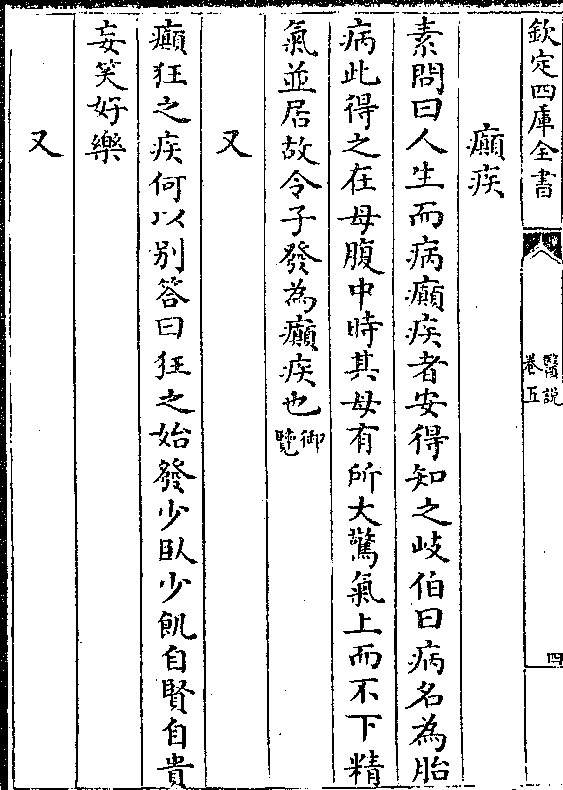 欽定四庫全書
醫説
卷五
四
癲疾
素問曰人生而病癲疾者安得知之岐伯曰病名為胎
病此得之在母腹中時其母有所大驚氣上而不下精
氣並居故令子發為癲疾也御覽
又
癲狂之疾何以别答曰狂之始發少卧少飢自賢自貴
妄笑好樂
又